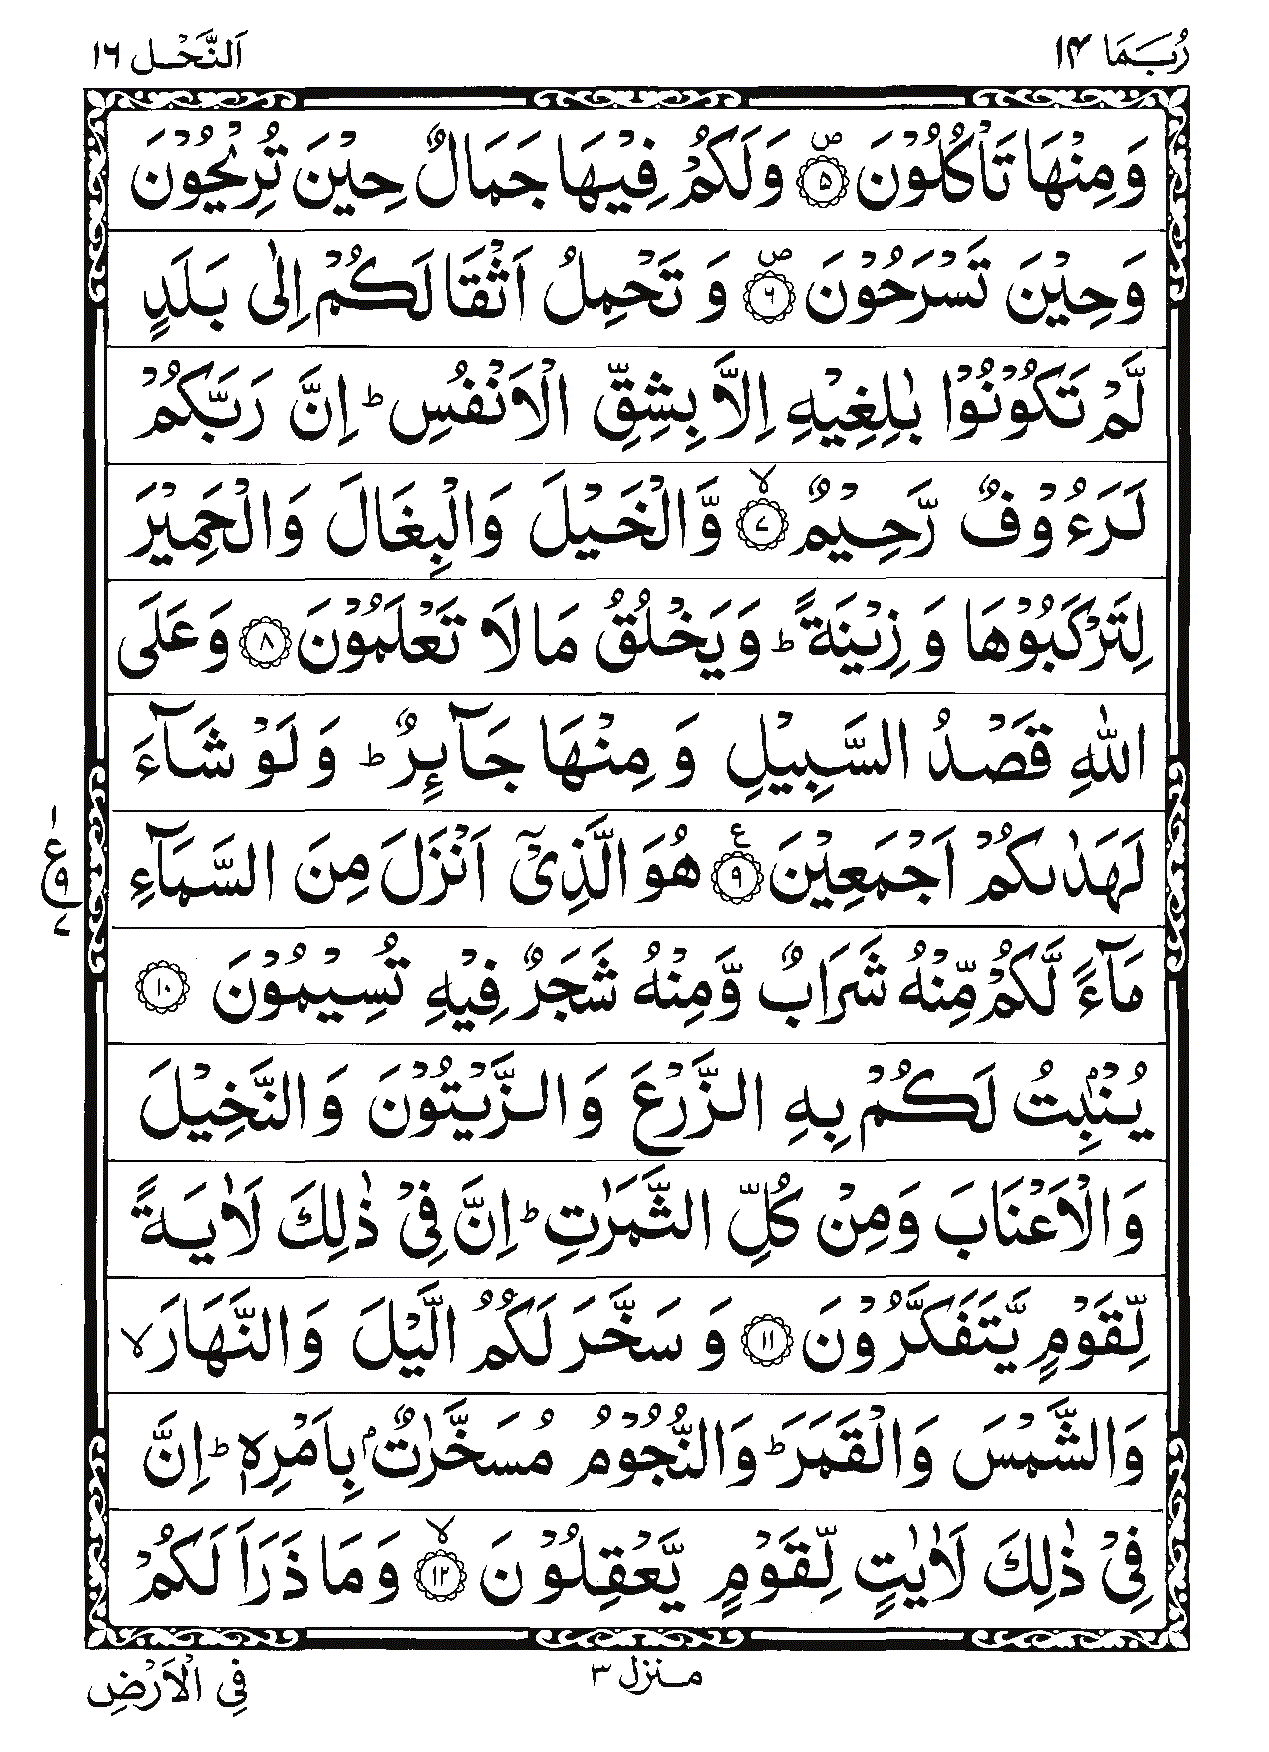 رُبَمَا ۱۴
اَلنَّحْل ۱۶
وَمِنْهَا تَاْكُلُوْنَ ۪﴿۵﴾ وَلَكُمْ فِيْهَا جَمَالٌ حِيْنَ تُرِيْحُوْنَ
وَحِيْنَ تَسْرَحُوْنَ ۪﴿۶﴾ وَ تَحْمِلُ اَثْقَالَكُمْ اِلٰى بَلَدٍ
لَّمْ تَكُوْنُوْا بٰلِغِيْهِ اِلَّا بِشِقِّ الْاَنْفُسِ ؕ اِنَّ رَبَّكُمْ
لَرَءُوْفٌ رَّحِيْمٌ ۙ﴿۷﴾ وَّالْخَيْلَ وَالْبِغَالَ وَالْحَمِيْرَ
لِتَرْكَبُوْهَا وَ زِيْنَةً ؕ وَيَخْلُقُ مَا لَا تَعْلَمُوْنَ ﴿۸﴾ وَعَلَى
اللّٰهِ قَصْدُ السَّبِيْلِ وَ مِنْهَا جَآئِرٌ ؕ وَ لَوْ شَآءَ
لَهَدٰىكُمْ اَجْمَعِيْنَ ﴿۹﴾ع هُوَ الَّذِيْۤ اَنْزَلَ مِنَ السَّمَآءِ
۱
ع
۹
۷
مَآءً لَّكُمْ مِّنْهُ شَرَابٌ وَّمِنْهُ شَجَرٌ فِيْهِ تُسِيْمُوْنَ ﴿۱۰﴾
يُنْۢبِتُ لَكُمْ بِهِ الزَّرْعَ وَ الزَّيْتُوْنَ وَالنَّخِيْلَ
وَالْاَعْنَابَ وَمِنْ كُلِّ الثَّمَرٰتِ ؕ اِنَّ فِيْ ذٰلِكَ لَاٰيَةً
لِّقَوْمٍ يَّتَفَكَّرُوْنَ ﴿۱۱﴾ وَ سَخَّرَ لَكُمُ الَّيْلَ وَالنَّهَارَ ۙ
وَالشَّمْسَ وَالْقَمَرَ ؕ وَالنُّجُوْمُ مُسَخَّرٰتٌۢ بِاَمْرِهٖ ؕ اِنَّ
فِيْ ذٰلِكَ لَاٰيٰتٍ لِّقَوْمٍ يَّعْقِلُوْنَ ۙ﴿۱۲﴾ وَمَا ذَرَاَ لَكُمْ
منزل ۳
فِي الْاَرْضِ